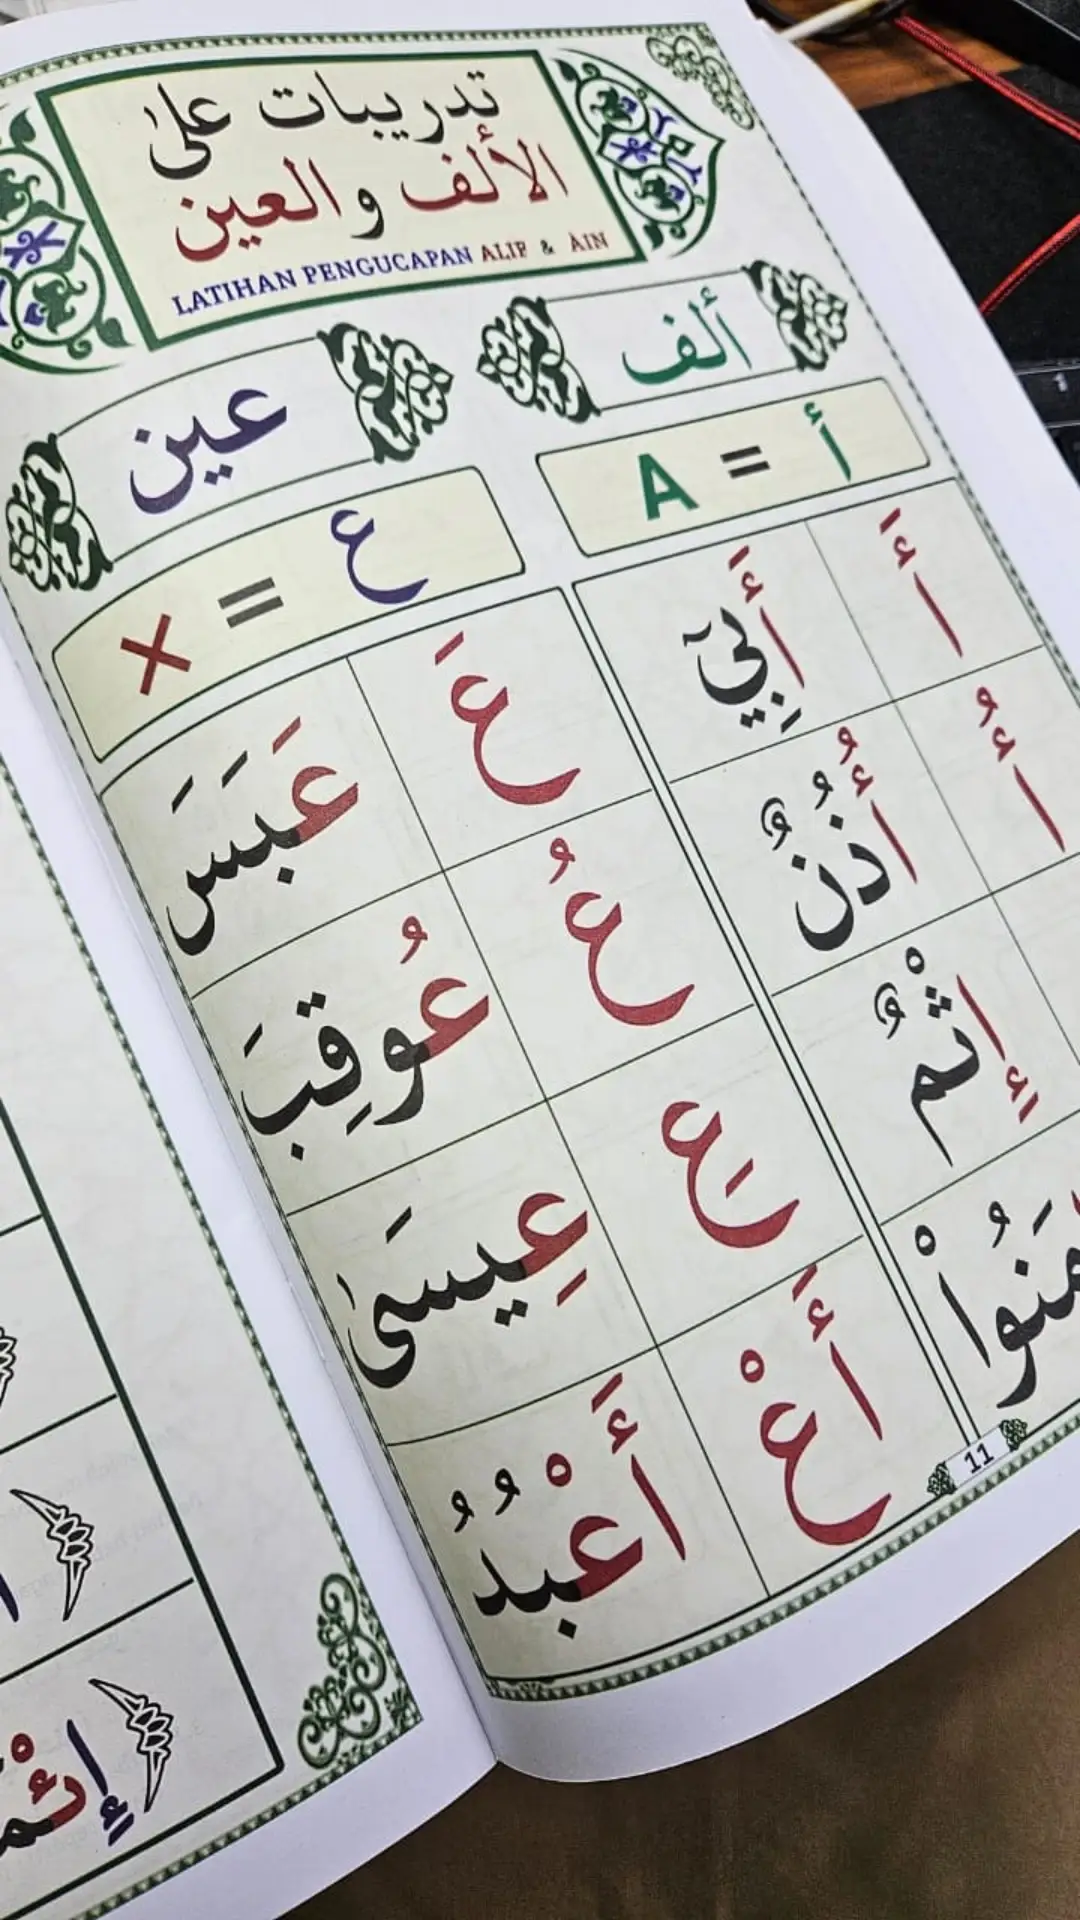 تدريبات على
الألف والعين
LATIHAN PENGUCAPAN ALIF & AIN
ألف
عين
أ = A
ع = X
أَ
أَبِيْ
عَ
عَبَسَ
أُ
أُذُنٌ
عُ
عُوقِبَ
إِثْمٌ
عِ
عِيسَىٰ
أَعْ
أَعْبُدُ
11